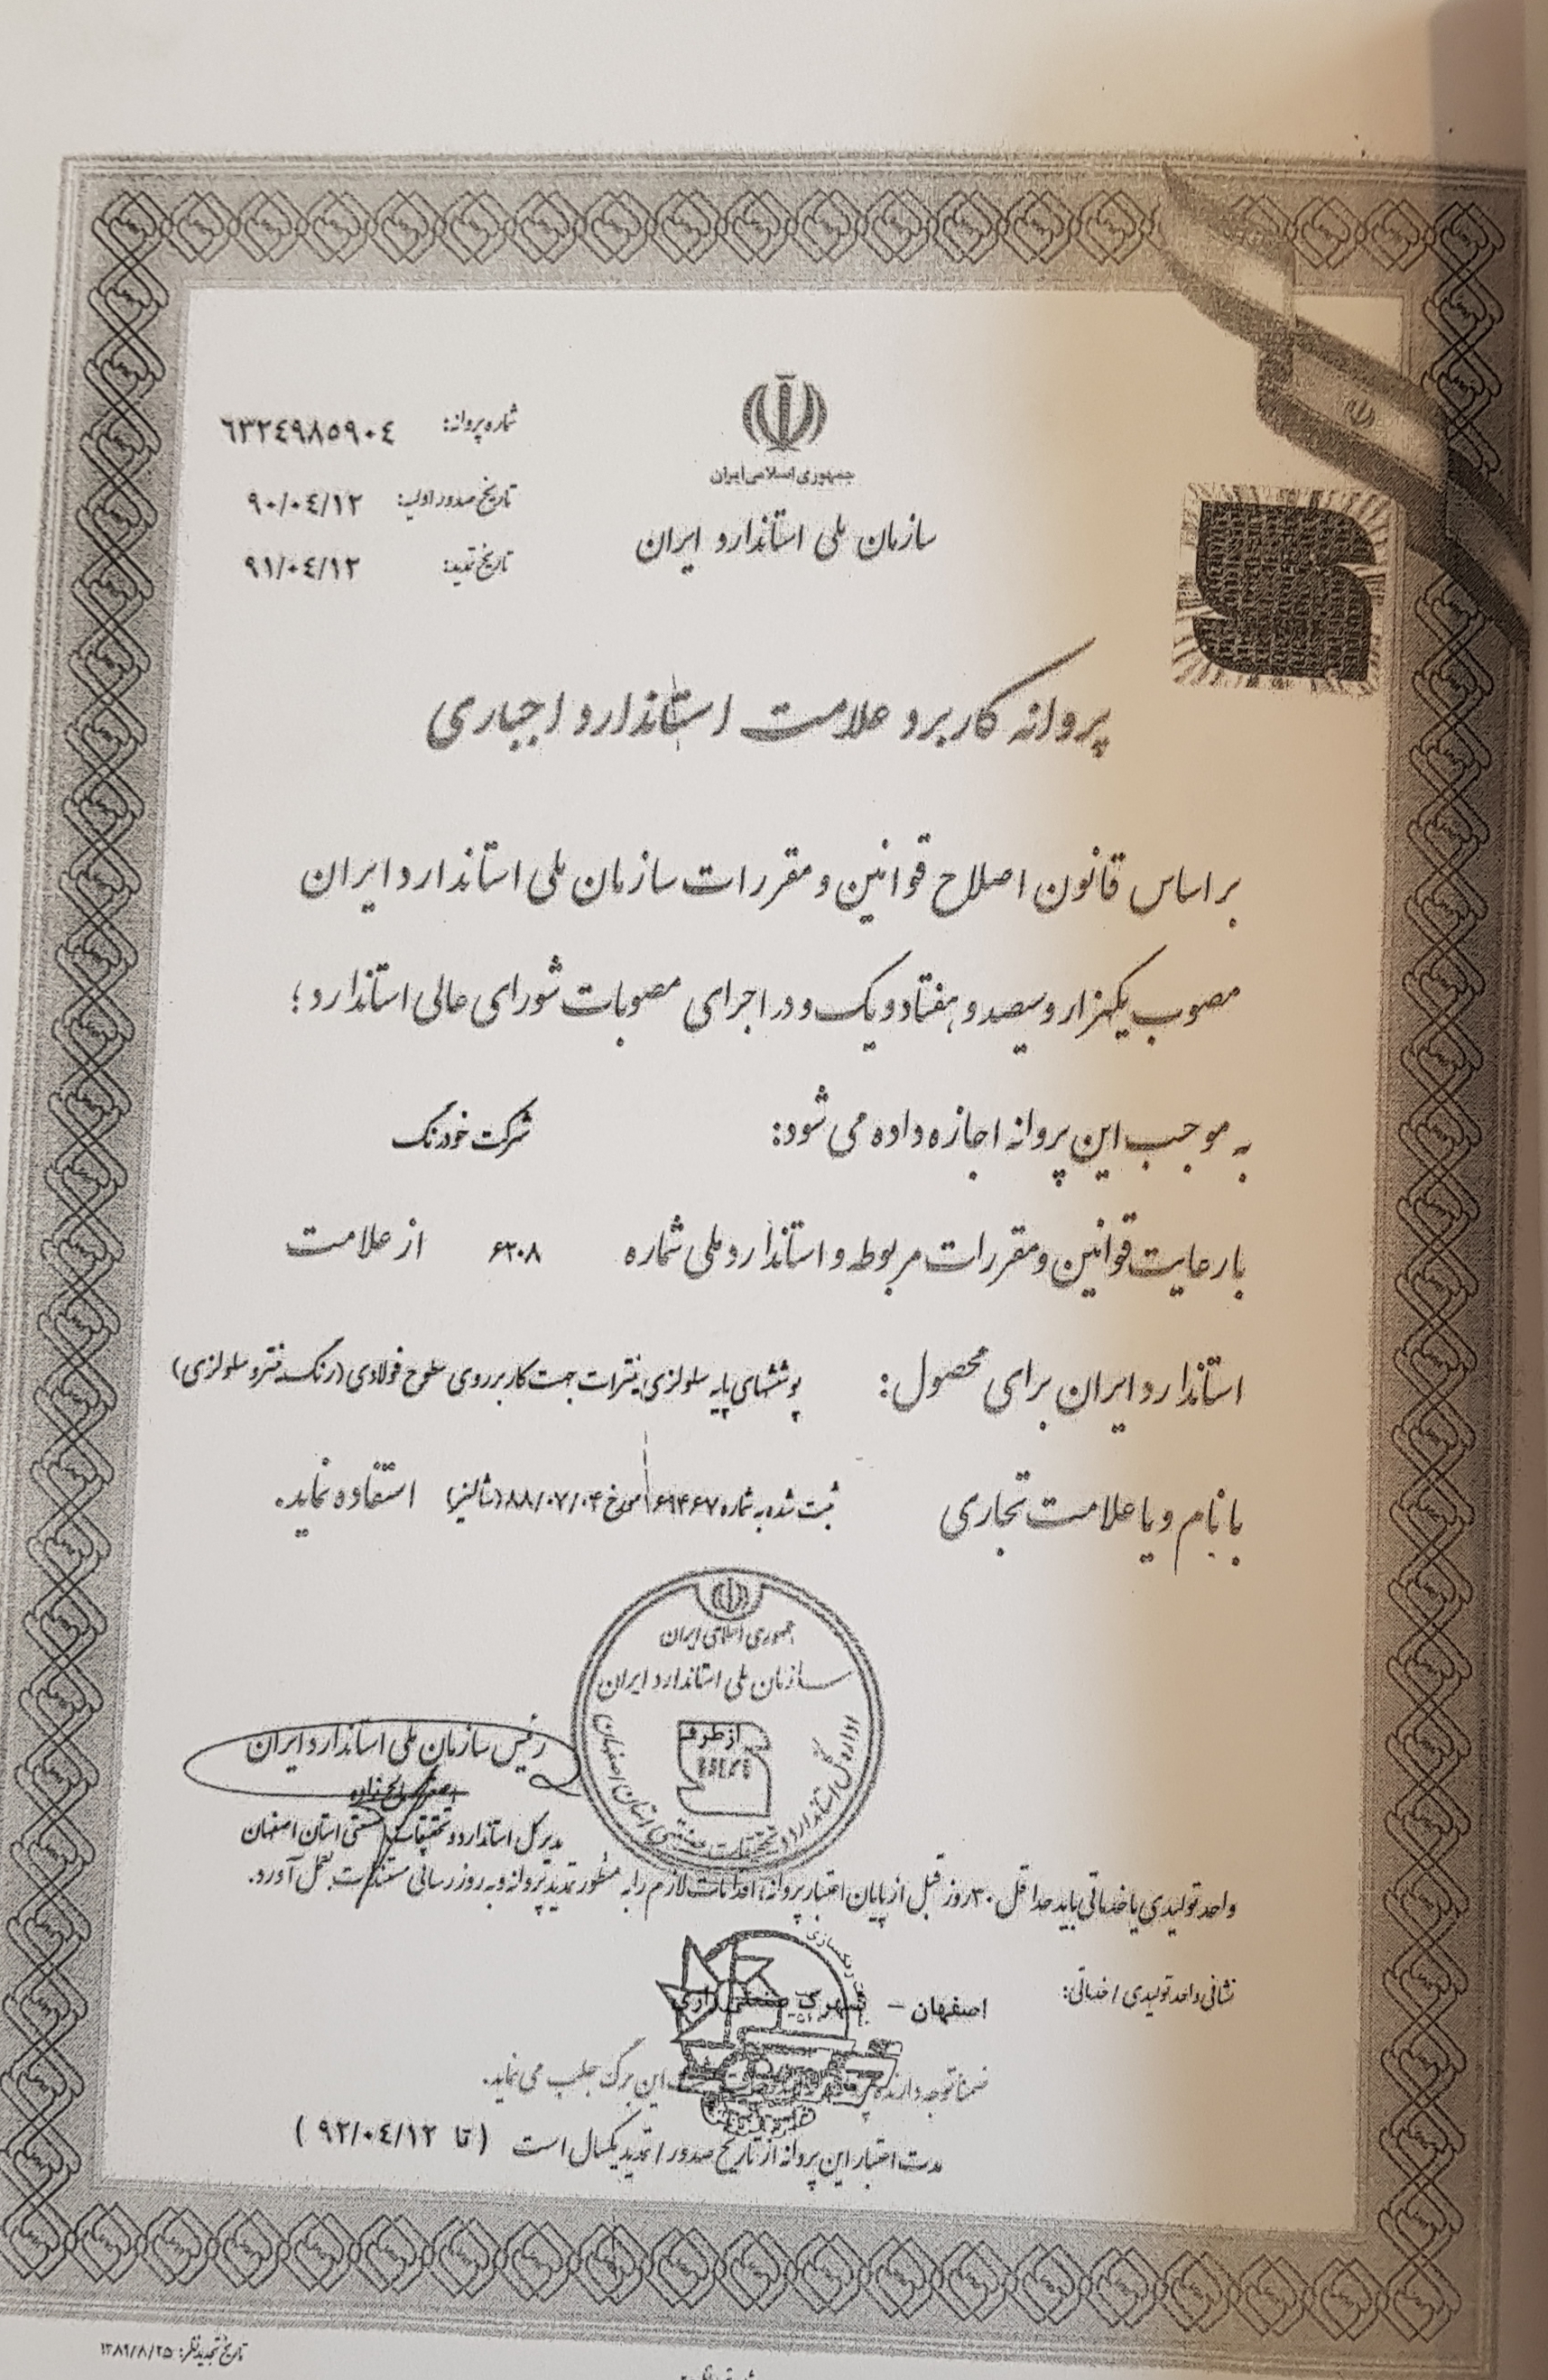 جمهوری اسلامی ایران
سازمان ملی استاندارد ایران
شماره پروانه: ٦٣٢٤٩٨٥٩٠٤
تاریخ صدور اولیه: ٩٠/٠٤/١٢
تاریخ تمدید: ٩١/٠٤/١٢
پروانه کاربرد علامت استاندارد اجباری
بر اساس قانون اصلاح قوانین و مقررات سازمان ملی استاندارد ایران
مصوب یکهزار و سیصد و هفتاد و یک و در اجرای مصوبات شورای عالی استاندارد؛
به موجب این پروانه اجازه داده می شود: شرکت خودرنگ
با رعایت قوانین و مقررات مربوطه و استاندارد ملی شماره ۶۲۰۸ از علامت
استاندارد ایران برای محصول: پوششهای پایه سلولزی نیترات جهت کاربر روی سطوح فولادی (رنگ نیترو سلولزی)
با نام و یا علامت تجاری ثبت شده به شماره ۱۶۹۴۶۷ مورخ ۸۸/۰۷/۰۴ استفاده نماید.
جمهوری اسلامی ایران
سازمان ملی استاندارد ایران
اداره کل استاندارد و تحقیقات صنعتی استان اصفهان
از طرف
رئیس سازمان ملی استاندارد ایران
مدیر کل استاندارد و تحقیقات صنعتی استان اصفهان
واحد تولیدی یا خدماتی باید حداقل ۳۰ روز قبل از پایان اعتبار پروانه، اقدامات لازم را به منظور تمدید پروانه و به روز رسانی مستندات بعمل آورد.
نشانی واحد تولیدی / خدماتی: اصفهان – شهرک صنعتی رازی
ضمناً توجه دارنده این برگ جلب می نماید.
مدت اعتبار این پروانه از تاریخ صدور / تمدید یکسال است (تا ٩٢/٠٤/١٢)
تاریخ تجدیدنظر: ۱۳۸۹/۸/۲۵